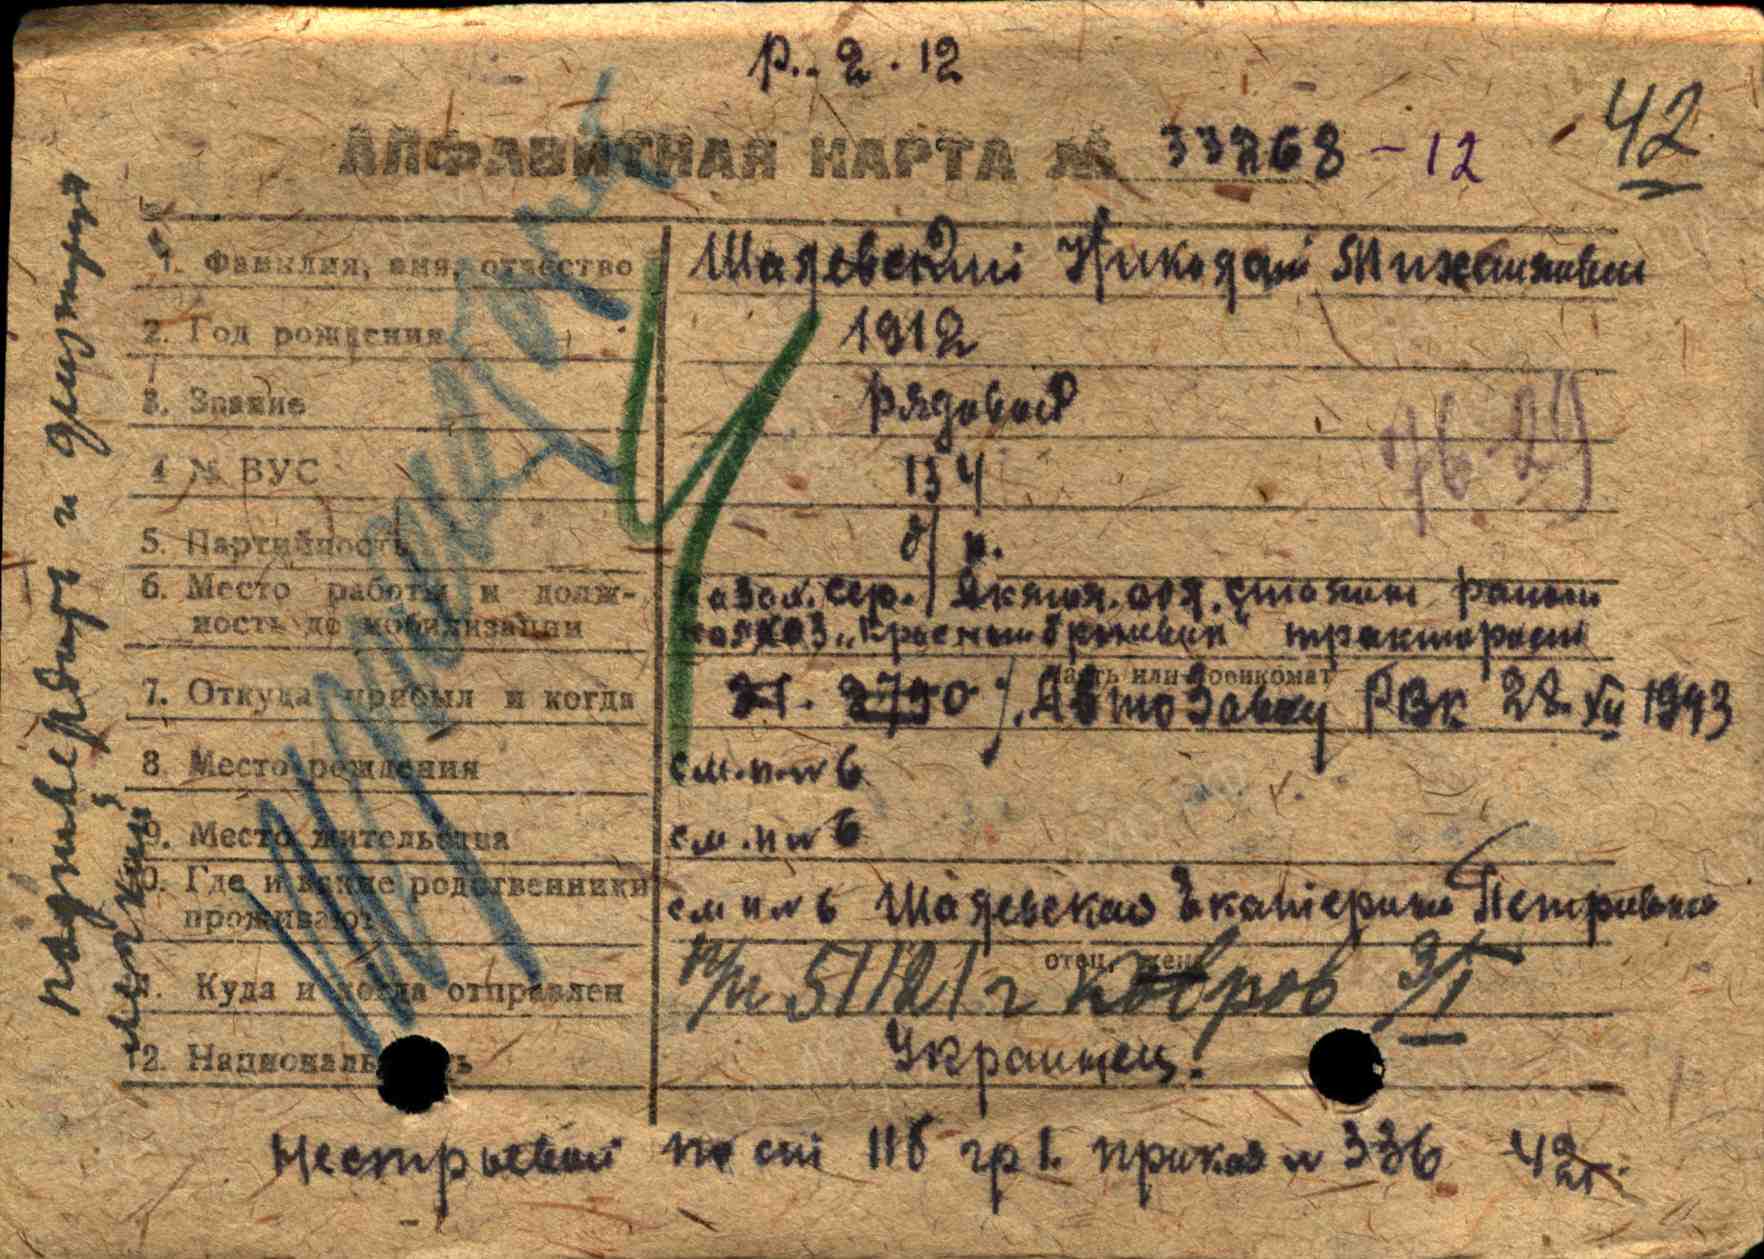 р. 2. 12
42
АЛФАВИТНАЯ КАРТА № 33768 - 12
1. Фамилия, имя, отчество Шаяевский Николай Михайлович
2. Год рождения 1912
3. Звание рядовой
76-29
4 № ВУС 134
5. Партийность б/п.
6. Место работы и долж-
ность до мобилизации
Казах. ССР. Акмол. обл. Сталин район
колхоз „Красный броневик" тракторист
часть или военкомат
7. Откуда прибыл и когда РВК 28. XII 1943
8. Место рождения см. п. № 6
9. Место жительства см. п № 6
10. Где и какие родственники
проживают
см п № 6 Екатерина Петровна
отец, жена
11. Куда и когда отправлен п/п 51121 г Ковров 3/I
12. Национальность Украинец.
Нестроевой по ст 11б гр I. приказ № 336 42г.